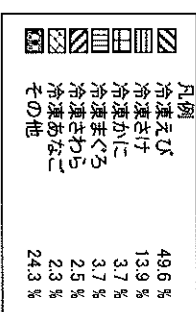 凡例
冷凍えび 49.6 %
冷凍さけ 13.9 %
冷凍かに 3.7 %
冷凍まぐろ 3.7 %
冷凍さわら 2.5 %
冷凍あなご 2.3 %
その他 24.3 %